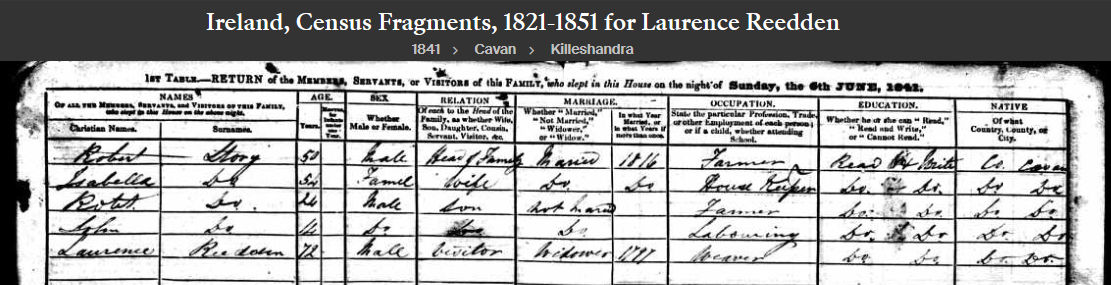 Ireland, Census Fragments, 1821-1851 for Laurence Reedden
1841 > Cavan > Killeshandra
1ST TABLE.—RETURN of the MEMBERS, SERVANTS, or VISITORS of this FAMILY, who slept in this House on the night of Sunday, the 6th JUNE, 1841.
NAMES AGE. SEX RELATION MARRIAGE. OCCUPATION. EDUCATION. NATIVE
OF ALL THE MEMBERS, SERVANTS, and VISITORS OF THIS FAMILY, who slept in this House on the above night. Years. Whether Male or Female. Of each to the Head of the Family, as whether Wife, Son, Daughter, Cousin, Servant, Visitor, &c. Whether "Married," "Not Married," "Widower," or "Widow." In what Year Married, or in what Years if more than once. State the particular Profession, Trade, or other Employment of each person; or if a child, whether attending School. Whether he or she can "Read," "Read and Write," or "Cannot Read." Of what Country, County, or City.
Christian Names. Surnames.
Robert Story 50 Male Head of Family Maried 1816 Farmer Read Write Co. Cavan
Isabella Do 54 Famel Wife Do. Do House Keeper Do. Do. Do Do
Robt. Do. 24 Male Son not maried Farmer Do. Do. Do. Do.
John Do 14 Do Do. Labouring Do. Do Do. Do
Laurence Reedden 72 Male Visitor Widower 1797 Weaver Do Do. Do. Do.